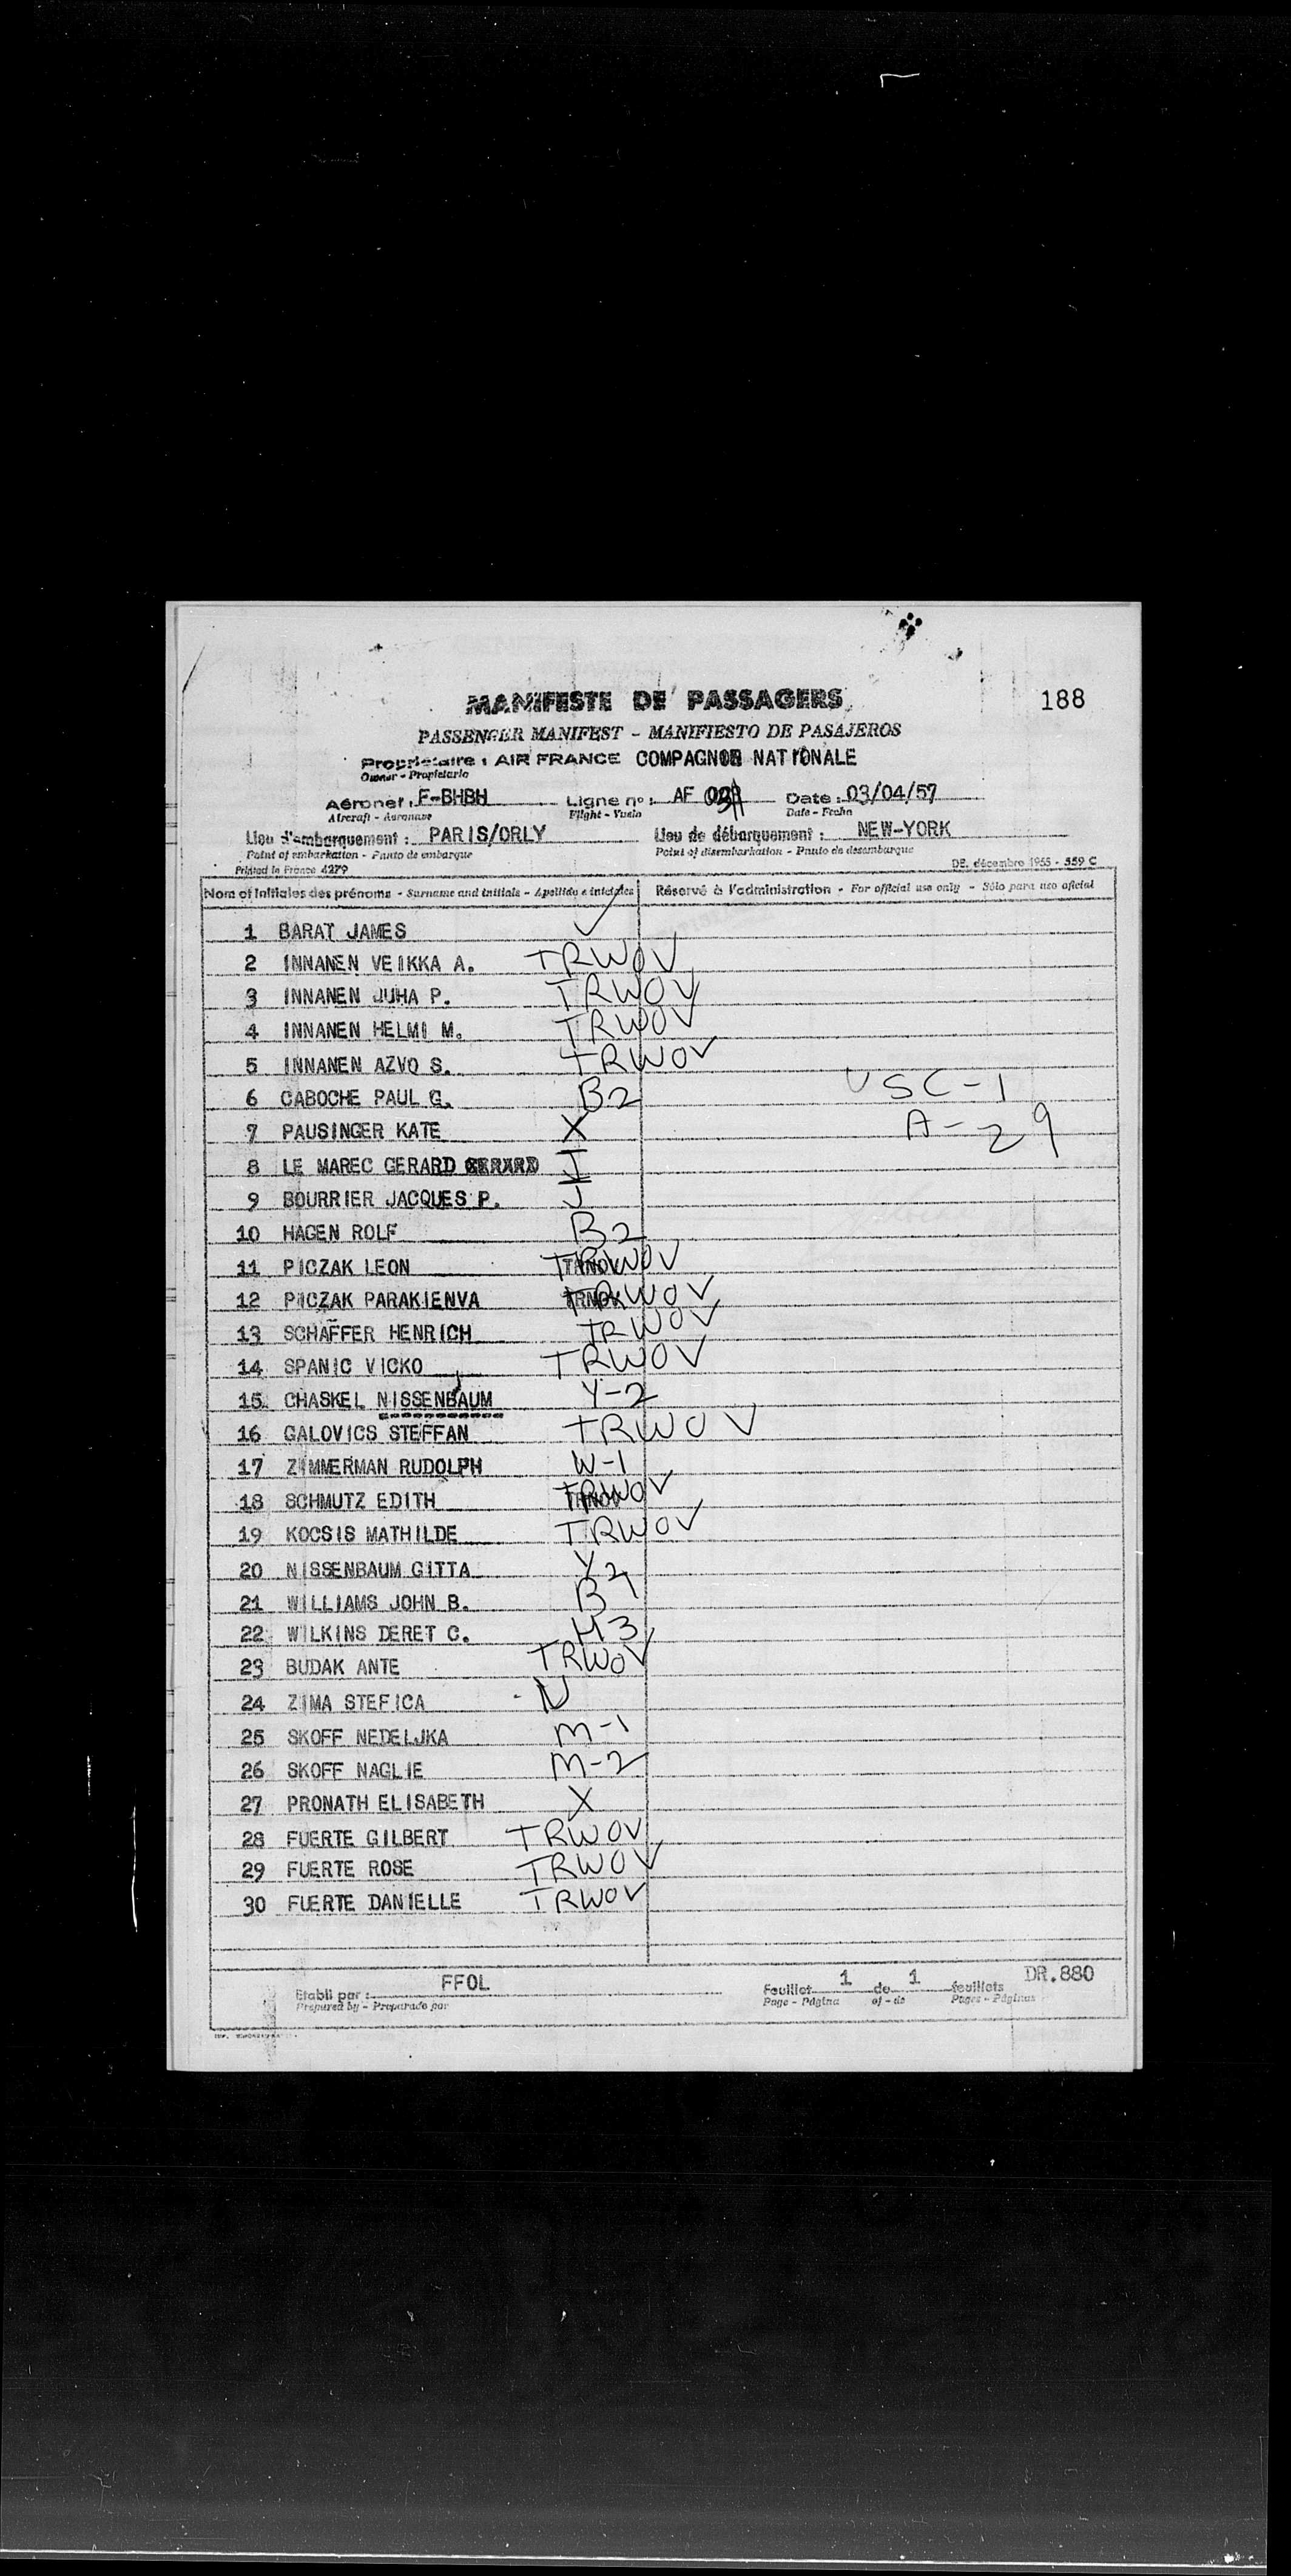 MANIFESTE DE PASSAGERS
188
PASSENGER MANIFEST - MANIFIESTO DE PASAJEROS
Propriétaire : AIR FRANCE COMPAGNOE NATIONALE
Owner - Propietario
Aéronef : F-BHBH Ligne n° : AF Date : 03/04/57
Aircraft - Aeronave Flight - Vuelo Date - Fecha
Lieu d'embarquement : PARIS/ORLY Lieu de débarquement : NEW-YORK
Point of embarkation - Punto de embarque Point of disembarkation - Punto de desembarque
Printed in France 4279 DE. décembre 1955 - 559 C
Nom et initiales des prénoms - Surname and initials - Apellido e iniciales Réservé à l'administration - For official use only - Sólo para uso oficial
1 BARAT JAMES ✓
2 INNANEN VEIKKA A. TRWOV
3 INNANEN JUHA P. TRWOV
4 INNANEN HELMI M. TRWOV
5 INNANEN AZVO S. TRWOV
6 CABOCHE PAUL G. B2 USC-1
7 PAUSINGER KATE X A-29
8 LE MAREC GERARD J
9 BOURRIER JACQUES P. J
10 HAGEN ROLF B2
11 PICZAK LEON TRWOV
12 PICZAK PARAKIENVA TRWOV
13 SCHÄFFER HENRICH TRWOV
14 SPANIC VICKO TRWOV
15 CHASKEL NISSENBAUM Y-2
16 GALOVICS STEFFAN TRWOV
17 ZIMMERMAN RUDOLPH W-1
18 SCHMUTZ EDITH TRWOV
19 KOCSIS MATHILDE TRWOV
20 NISSENBAUM GITTA Y2
21 WILLIAMS JOHN B. B1
22 WILKINS DERET C. H3
23 BUDAK ANTE TRWOV
24 ZIMA STEFICA N
25 SKOFF NEDELJKA M-1
26 SKOFF NAGLIE M-2
27 PRONATH ELISABETH X
28 FUERTE GILBERT TRWOV
29 FUERTE ROSE TRWOV
30 FUERTE DANIELLE TRWOV
Etabli par : FFOL Feuillet 1 de 1 feuillets DR.880
Prepared by - Preparado por Page - Página of - de Pages - Páginas